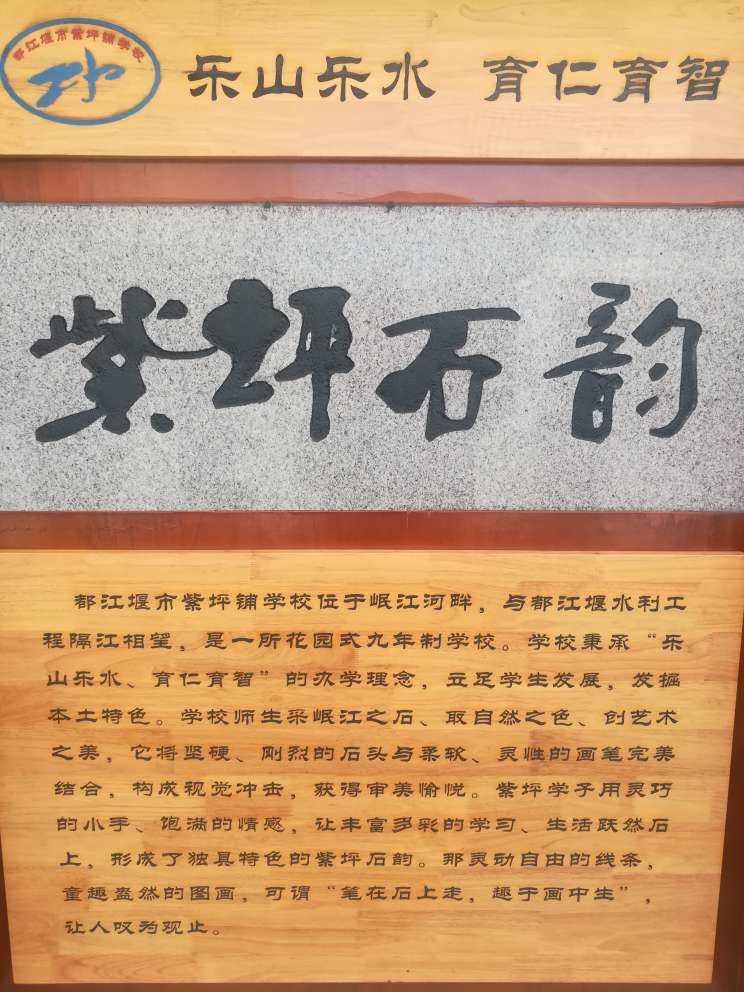 都江堰市紫坪铺学校
乐山乐水 育仁育智
紫坪石韵
都江堰市紫坪铺学校位于岷江河畔，与都江堰水利工
程隔江相望，是一所花园式九年制学校。学校秉承“乐
山乐水、育仁育智”的办学理念，立足学生发展，发掘
本土特色。学校师生采岷江之石、取自然之色、创艺术
之美，它将坚硬、刚烈的石头与柔软、灵性的画笔完美
结合，构成视觉冲击，获得审美愉悦。紫坪学子用灵巧
的小手、饱满的情感，让丰富多彩的学习、生活跃然石
上，形成了独具特色的紫坪石韵。那灵动自由的线条，
童趣盎然的图画，可谓“笔在石上走，趣于画中生”，
让人叹为观止。